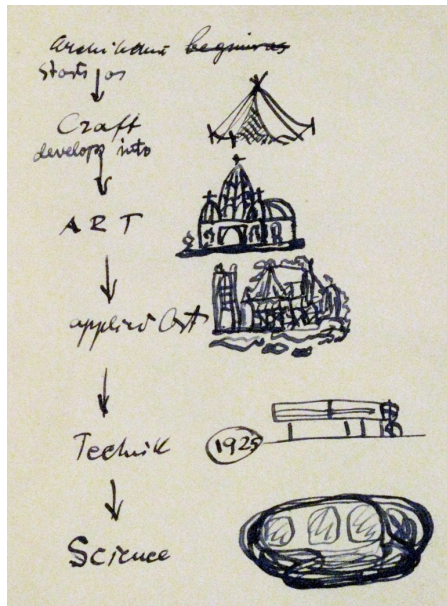 Architecture beginns as
starts as
Craft
develops into
ART
applied Art
Technik 1925
Science